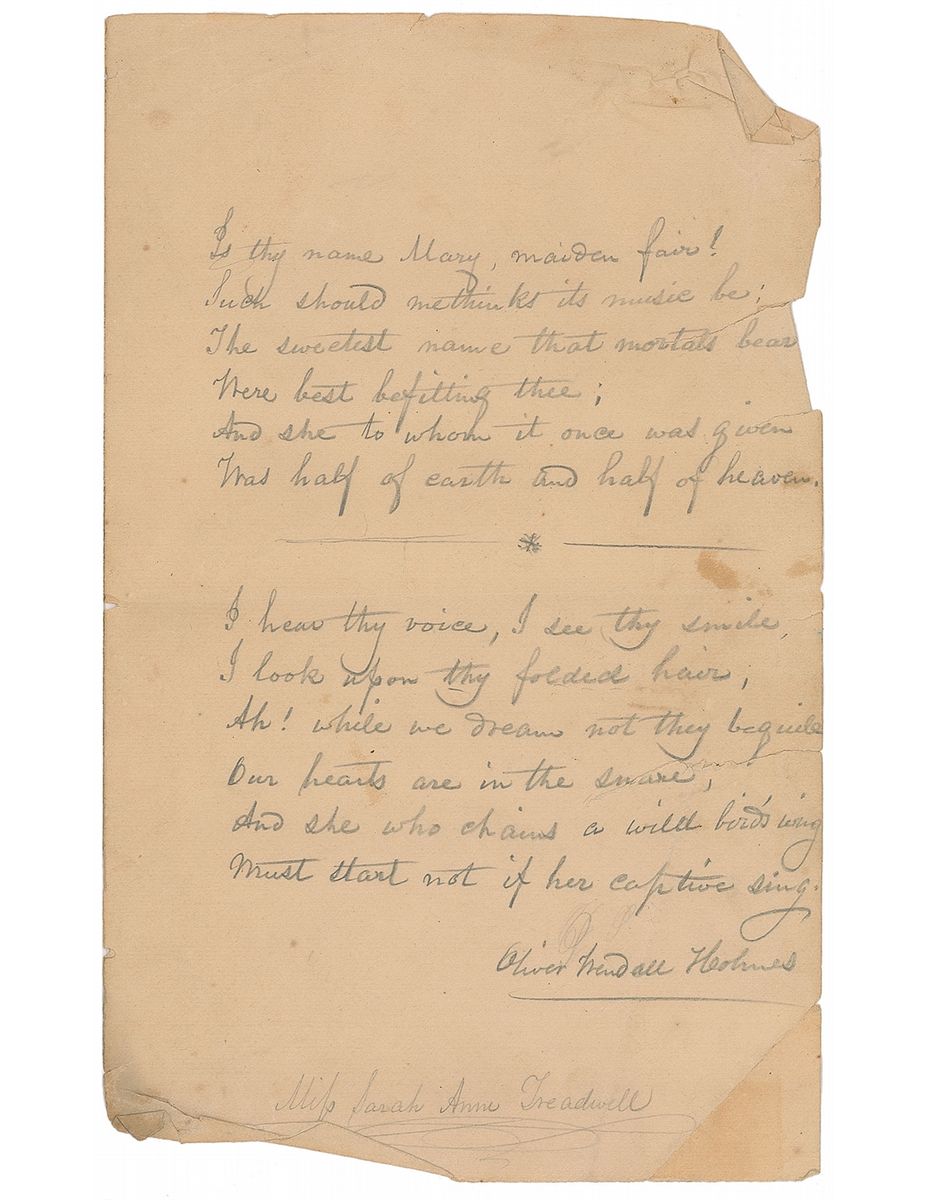 Is thy name Mary, maiden fair!
Such should methinks its music be;
The sweetest name that mortals bear
Were best befitting thee;
And she to whom it once was given
Was half of earth and half of heaven.
I hear thy voice, I see thy smile,
I look upon thy folded hair,
Ah! while we dream not they beguile
Our hearts are in the snare,
And she who chains a wild bird's wing
Must start not if her captive sing.
Oliver Wendall Holmes
Miss Sarah Anne Treadwell